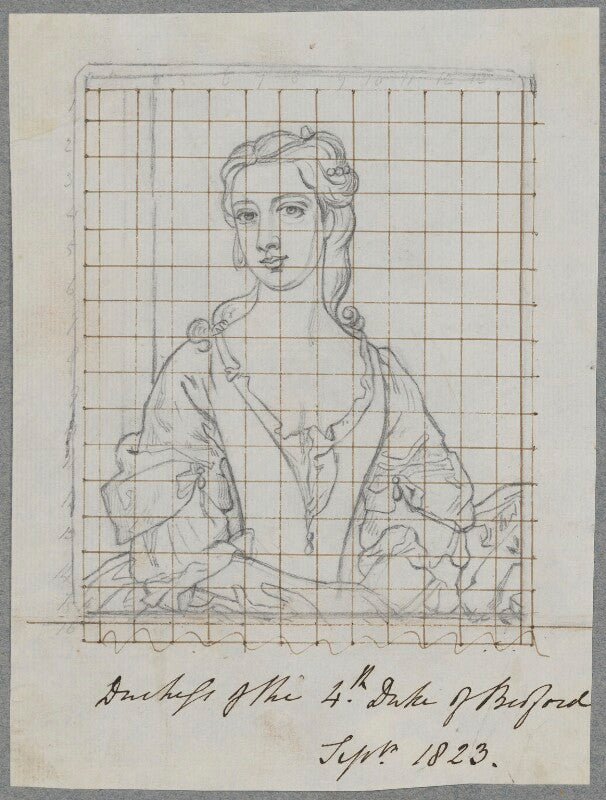 Dutchess of the 4.th Duke of Bedford
Septr. 1823.